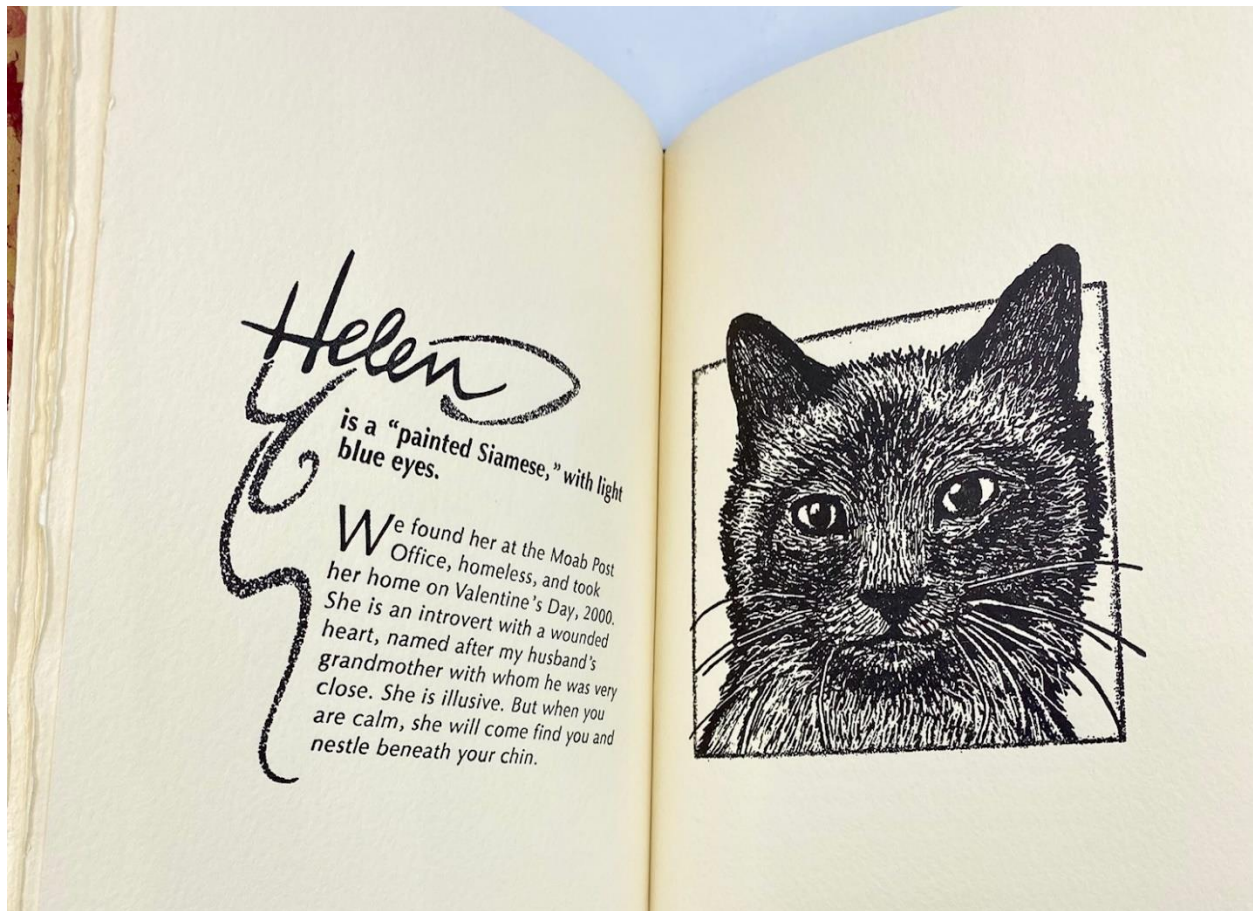 Helen
is a “painted Siamese,” with light
blue eyes.
We found her at the Moab Post
Office, homeless, and took
her home on Valentine’s Day, 2000.
She is an introvert with a wounded
heart, named after my husband’s
grandmother with whom he was very
close. She is illusive. But when you
are calm, she will come find you and
nestle beneath your chin.